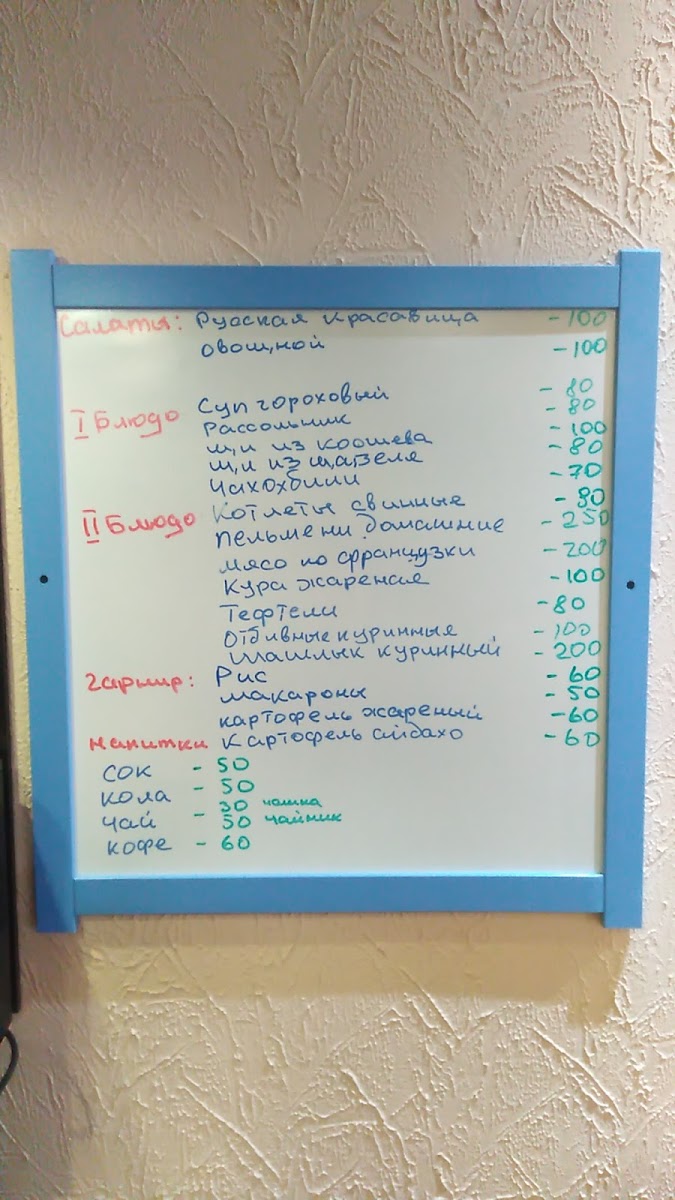 Салаты: Русская красавица - 100
овощной - 100
I Блюдо Суп гороховый - 80
Рассольник - 80
щи из крошева - 100
щи из щавеля - 80
Чахохбили - 70
II Блюдо Котлеты свинные - 90
пельмени домашние - 250
мясо по французки - 200
Кура жареная - 100
Тефтели - 80
Отбивные куринные - 100
шашлык куринный - 200
гарнир: Рис - 60
макароны - 50
картофель жареный - 60
напитки картофель айдахо - 60
сок - 50
кола - 50
чай - 30 чашка
50 чайник
кофе - 60